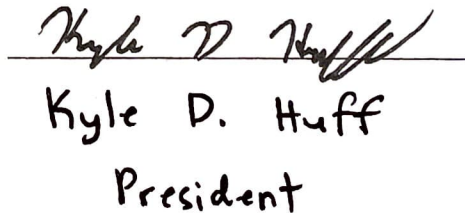 Kyle D Huff
Kyle D. Huff
President